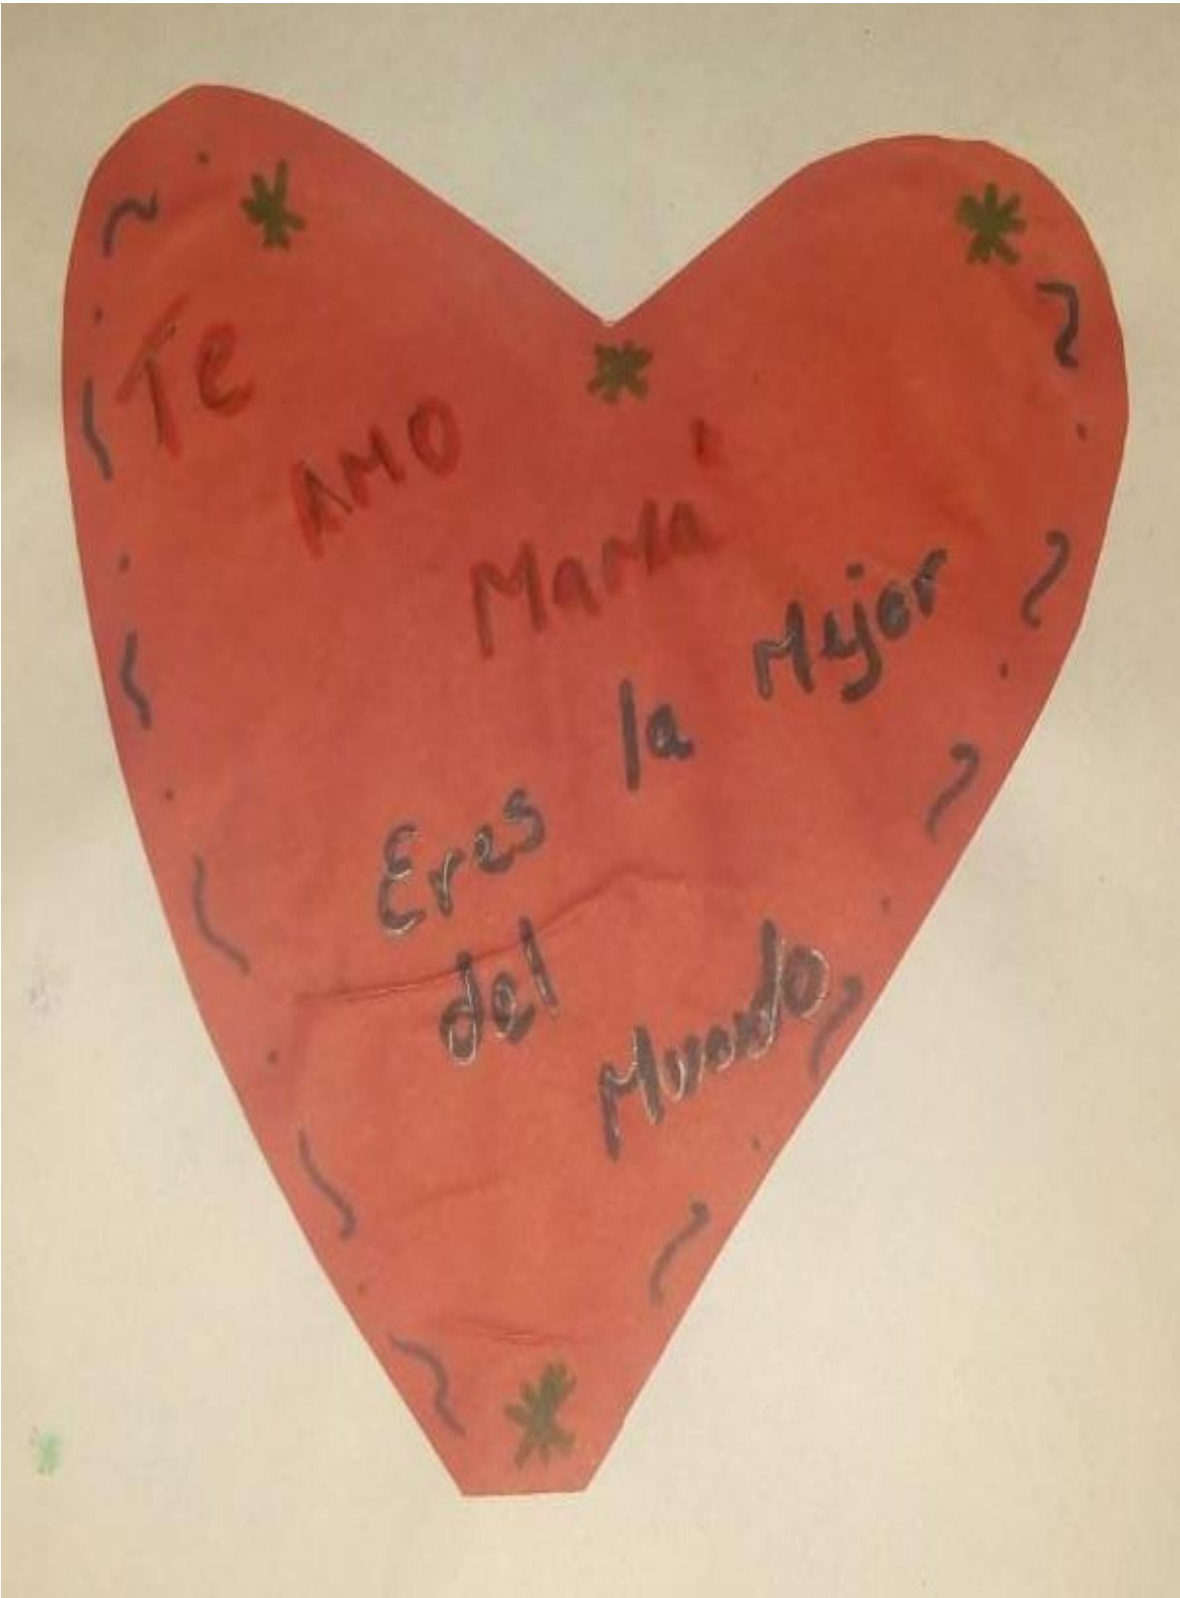 Te AMO Mamá
Eres la Mejor
del Mundo